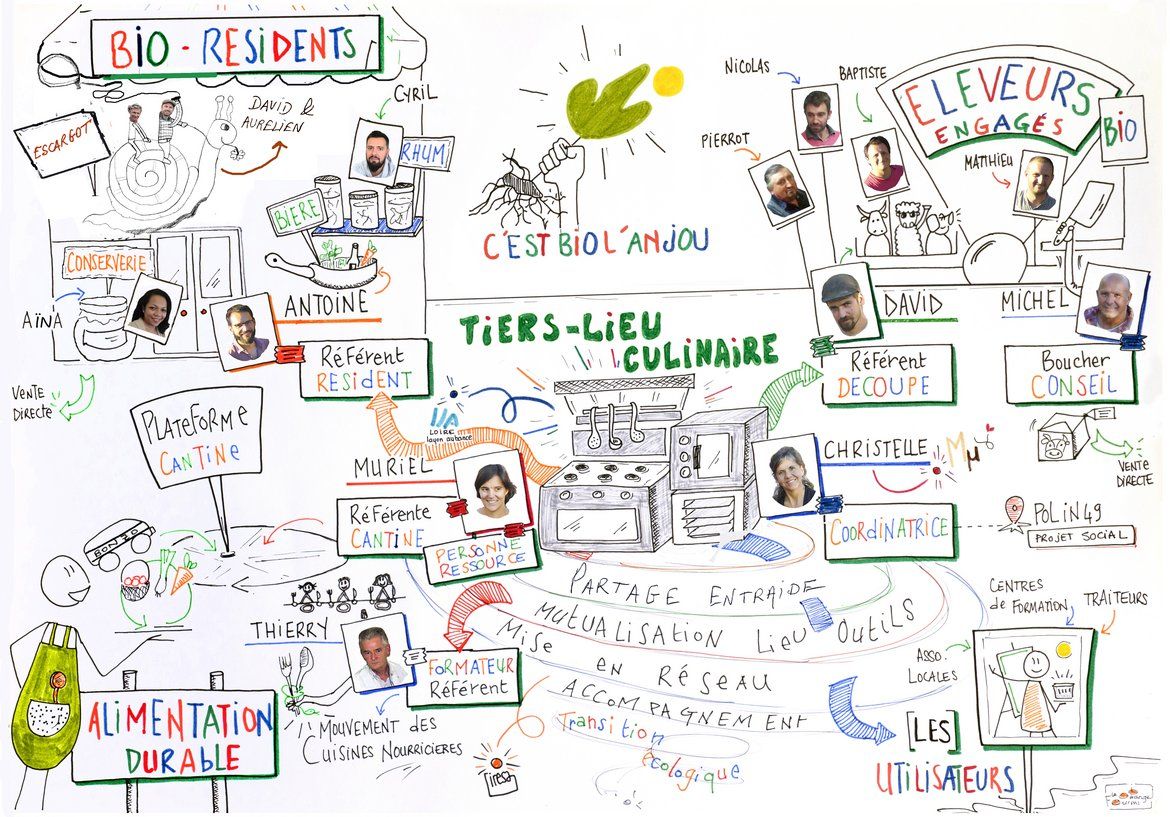 BIO - RESIDENTS
ESCARGOT
DAVID &
AURELIEN
CYRIL
RHUM
BIERE
CONSERVERIE
AÏNA
ANTOINE
Référent
RESIDENT
VENTE
DIRECTE
C'EST BIO L'ANJOU
NICOLAS
BAPTISTE
PIERROT
ELEVEURS
ENGAGÉS
BIO
MATTHIEU
DAVID
Référent
DECOUPE
MICHEL
Boucher
CONSEIL
VENTE
DIRECTE
TIERS-LIEU
CULINAIRE
LOIRE
layon aubance
PLATEFORME
CANTINE
MURIEL
Référente
CANTINE
PERSONNE
RESSOURCE
CHRISTELLE
COORDINATRICE
POLIN49
PROJET SOCIAL
BONJO
THIERRY
FORMATEUR
Référent
MOUVEMENT des
CUISINES NOURRICIERES
ALIMENTATION
DURABLE
PARTAGE ENTRAIDE
MUTUALISATION LIEU OUTILS
MISE en RÉSEAU
ACCOMPAGNEMENT
Transition
écologique
Iresa
CENTRES
de FORMATION
TRAITEURS
ASSO.
LOCALES
[LES]
UTILISATEURS